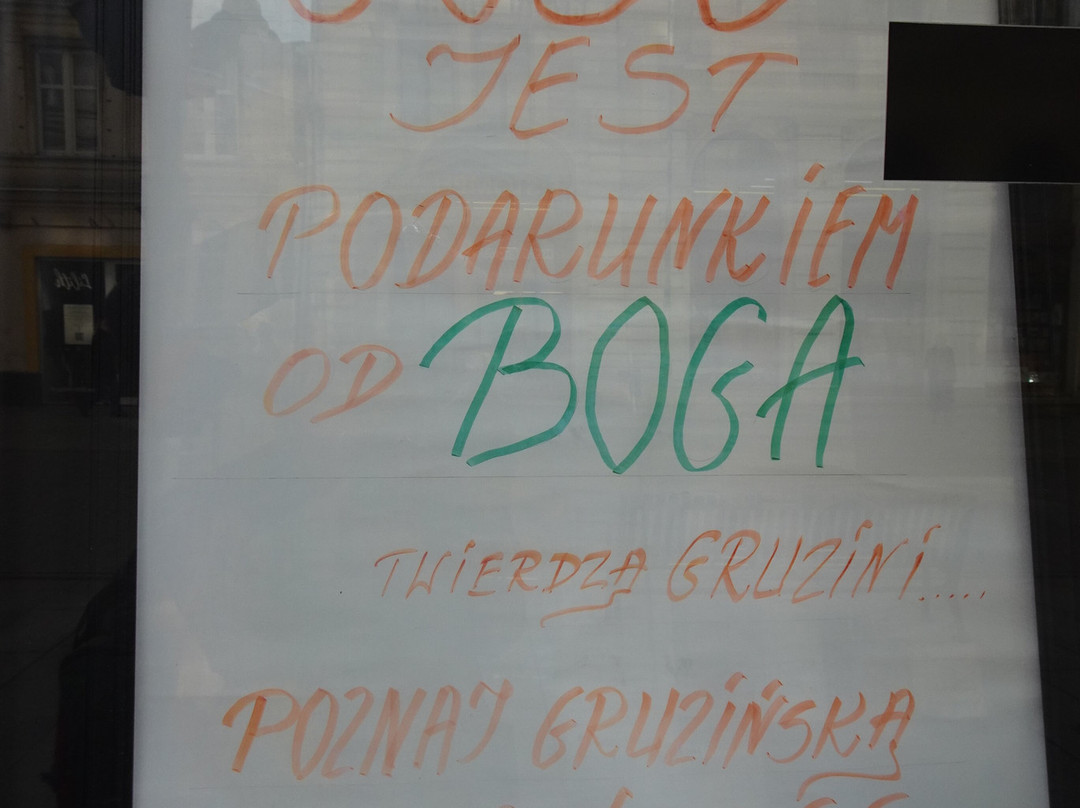 JEST
PODARUNKIEM
OD BOGA
TWIERDZĄ GRUZINI.....
POZNAJ GRUZIŃSKĄ